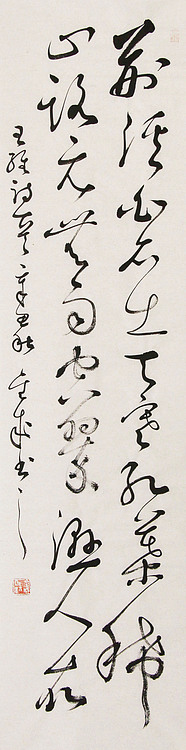 荆溪白石出天寒紅葉稀
山路元無雨空翠濕人衣
王維詩辛丑秋書